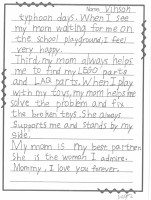 Name: Vinson
typhoon days. When I see
my mom waiting for me on
the school playground, I feel
very happy.
Third, my mom always helps
me to find my LEGO parts
and LaQ parts. When I play
with my toys, my mom helps me
solve the problem and fix
the broken toys. She always
supports me and stands by my
side.
My mom is my best partner.
She is the woman I admire.
Mommy, I love you forever.